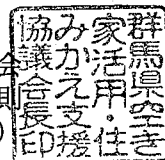 群馬県空き
家活用・住
みかえ支援
協議会長印